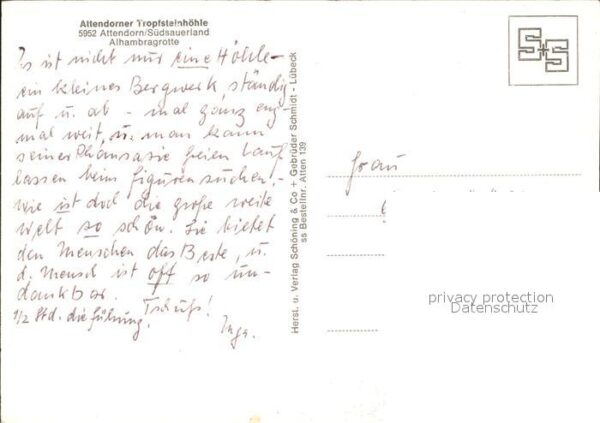 Attendorner Tropfsteinhöhle
5952 Attendorn/Südsauerland
Alhambragrotte
Es ist nicht nur eine Höhle –
ein kleines Bergwerk, ständig
auf u. ab – mal ganz eng
mal weit, u. man kann
seiner Phansasie freien Lauf
lassen beim figuren suchen! –
wie ist doch die große weite
Welt so schön. Sie bietet
den Menschen das Beste, u.
d. Mensch ist oft so un-
dankbar.
Tschüß!
1/2 Std. die führung.
Inga.
Herst. u. Verlag Schöning & Co + Gebrüder Schmidt - Lübeck
ss Bestellnr. Atten 139
S+S
Frau
privacy protection
Datenschutz